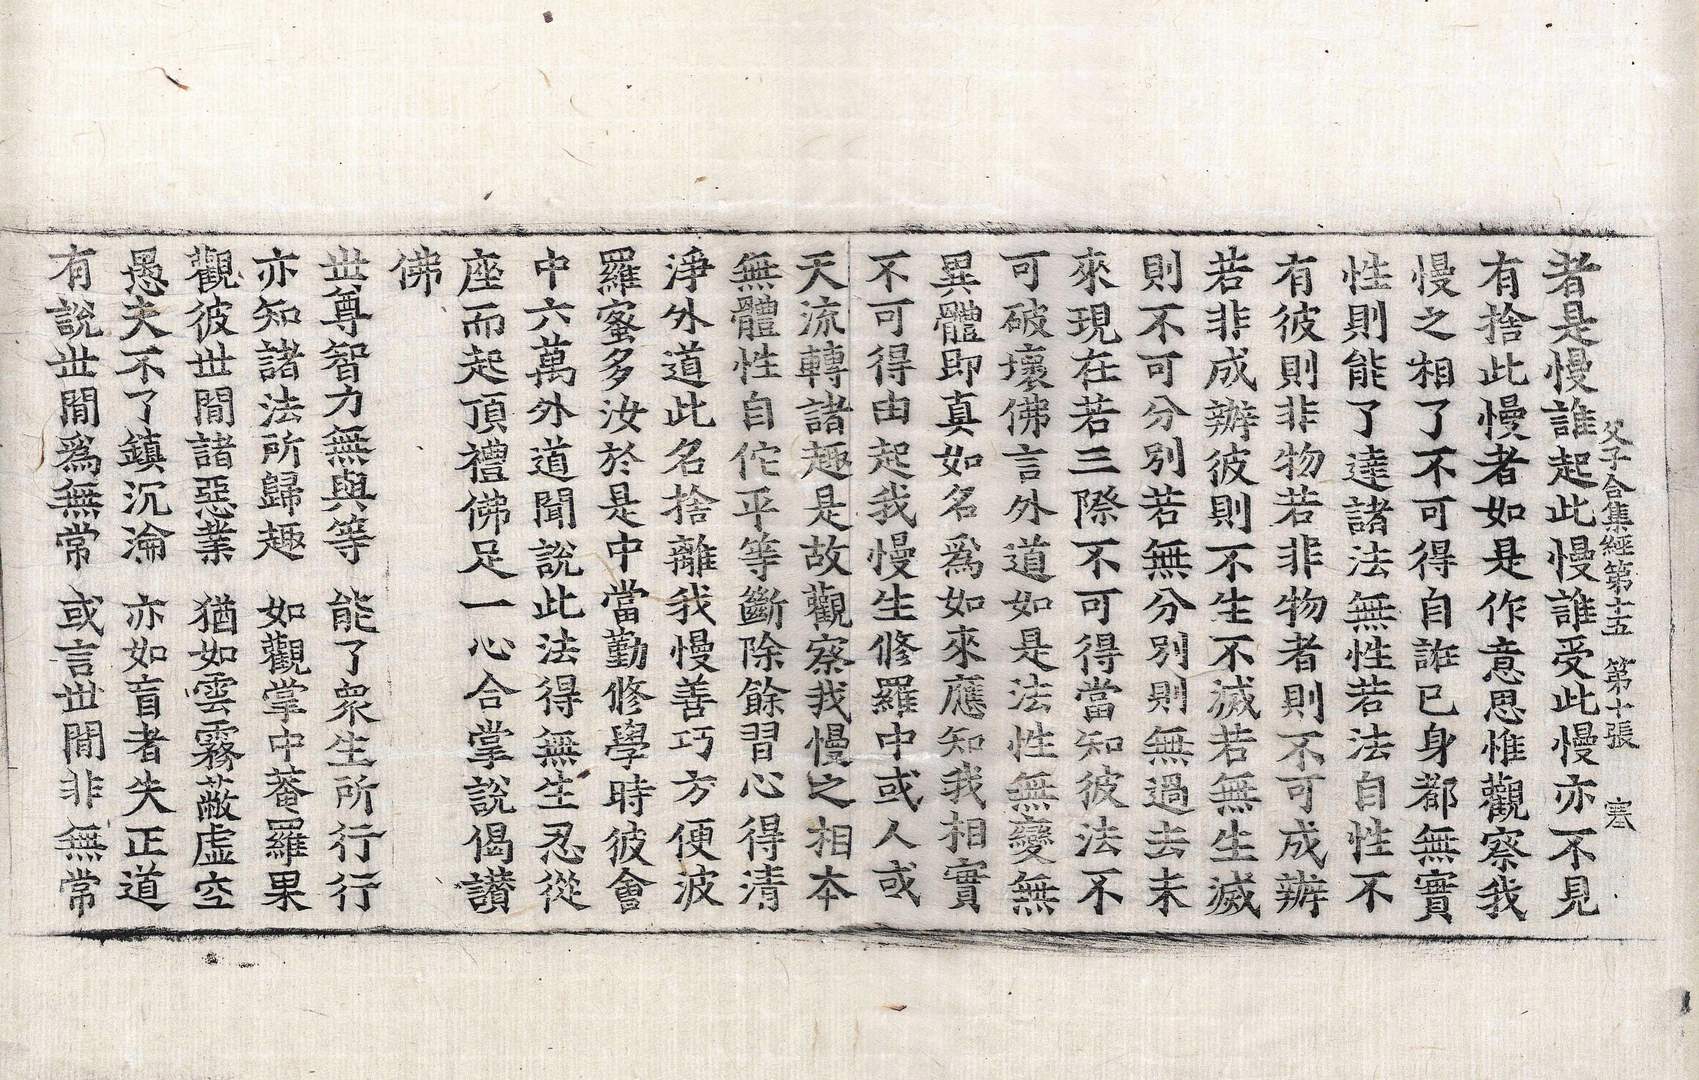 父子合集經第十五　第十張　塞
者是慢誰起此慢誰受此慢亦不見
有捨此慢者如是作意思惟觀察我
慢之相了不可得自誑已身都無實
性則能了達諸法無性若法自性不
有彼則非物若非物者則不可成辦
若非成辦彼則不生不滅若無生滅
則不可分別若無分別則無過去未
來現在若三際不可得當知彼法不
可破壞佛言外道如是法性無變無
異體即真如名爲如來應知我相實
不可得由起我慢生修羅中或人或
天流轉諸趣是故觀察我慢之相本
無體性自佗平等斷除餘習心得清
淨外道此名捨離我慢善巧方便波
羅蜜多汝於是中當勤修學時彼會
中六萬外道聞說此法得無生忍從
座而起頂禮佛足一心合掌說偈讃
佛
世尊智力無與等　能了衆生所行行
亦知諸法所歸趣　如觀掌中菴羅果
觀彼世閒諸惡業　猶如雲霧蔽虛空
愚夫不了鎮沉淪　亦如盲者失正道
有說世閒爲無常　或言世閒非無常